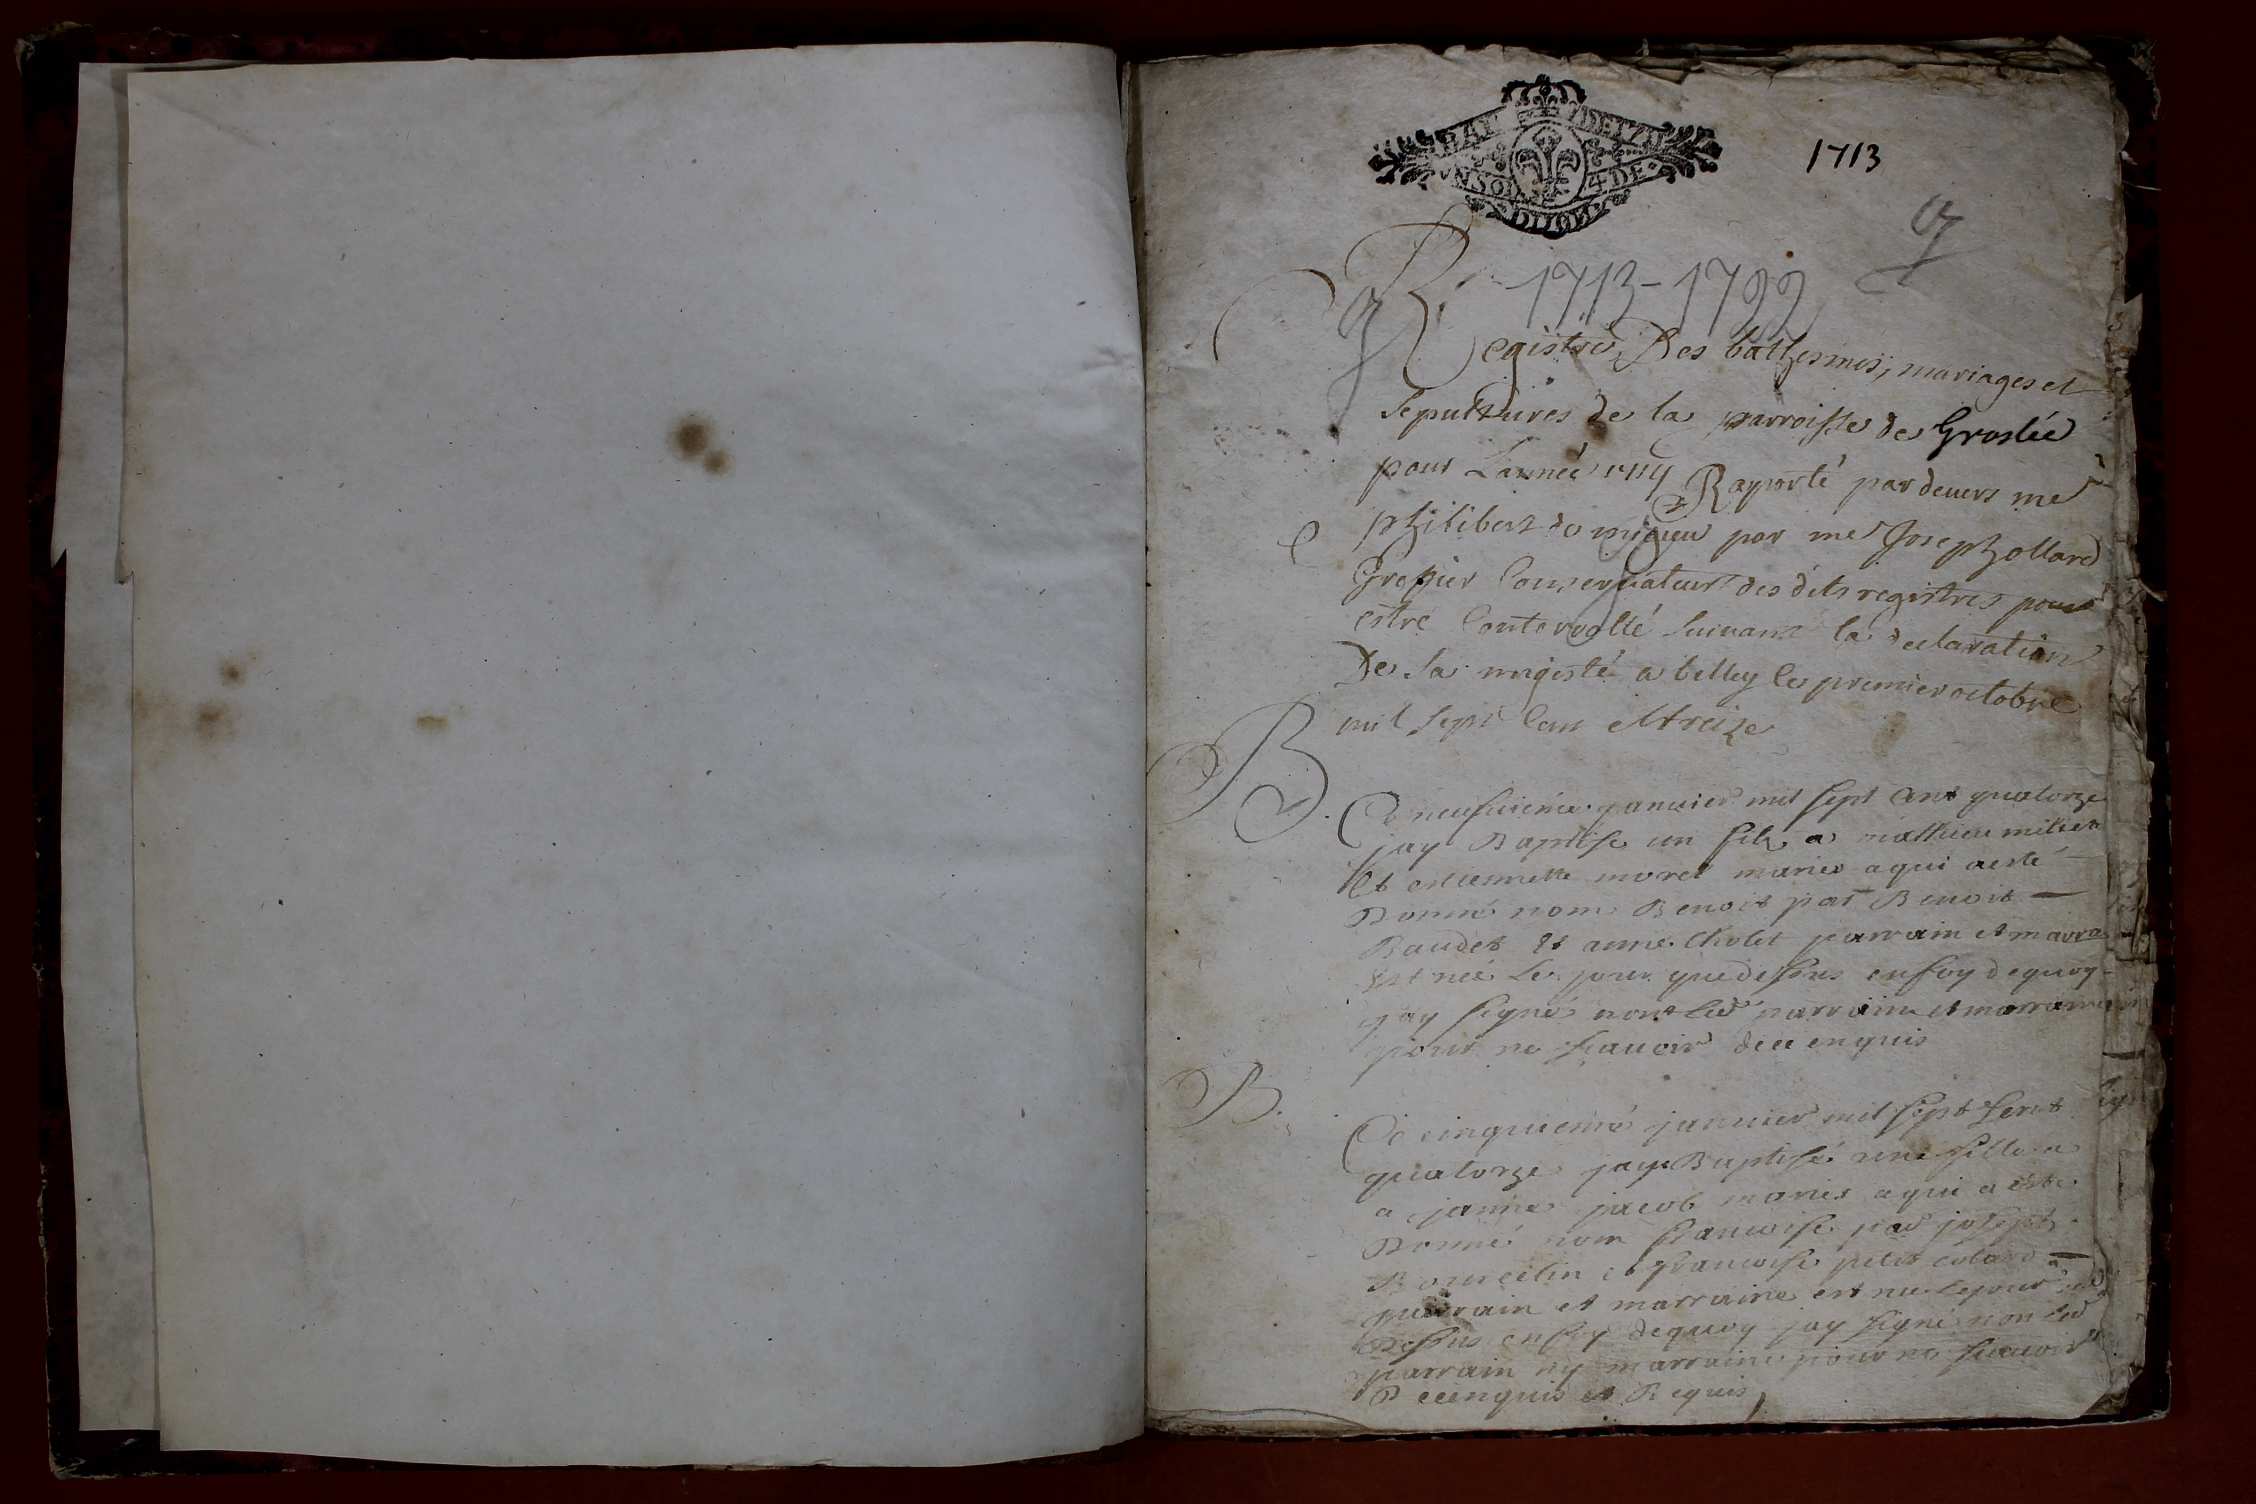 1713
1713-1799
Registre Des battesmes, mariages et
Sepultures de la parroisse de Groslée
pour L'année 1714 Raporté pardevers me
philibert de migieu par me Joseph ollard
Grefier Conservateur des dits registres pour
estre Contervollé suivant la declaration
De sa majesté a belley le premier octobre
mil Sept Cent et treize
B
Ce neufvieme janvier mil sept cent quatorze
jay Baptisé un filz a mathieu millet
Et estiennette morel mariés a qui a esté
Donné nom Benoit par Benoit
Baudet et anne Cholet parrain et marra
est neé le jour que dessus en foy de quoy
jay signé non led parrain et marraine
pour ne scavoir de ce enquis
B.
Ce cinquieme janvier mil sept sent
quatorze jay Baptisé une fille a
a janne jacob mariés a qui a esté
Donné nom francoise par joseph
et francoise petit colard
parrain et marraine est née le jour
Dessus en foy de quoy jay signé non led
parrain ny marraine pour ne scavoir
De ce enquis et Requis